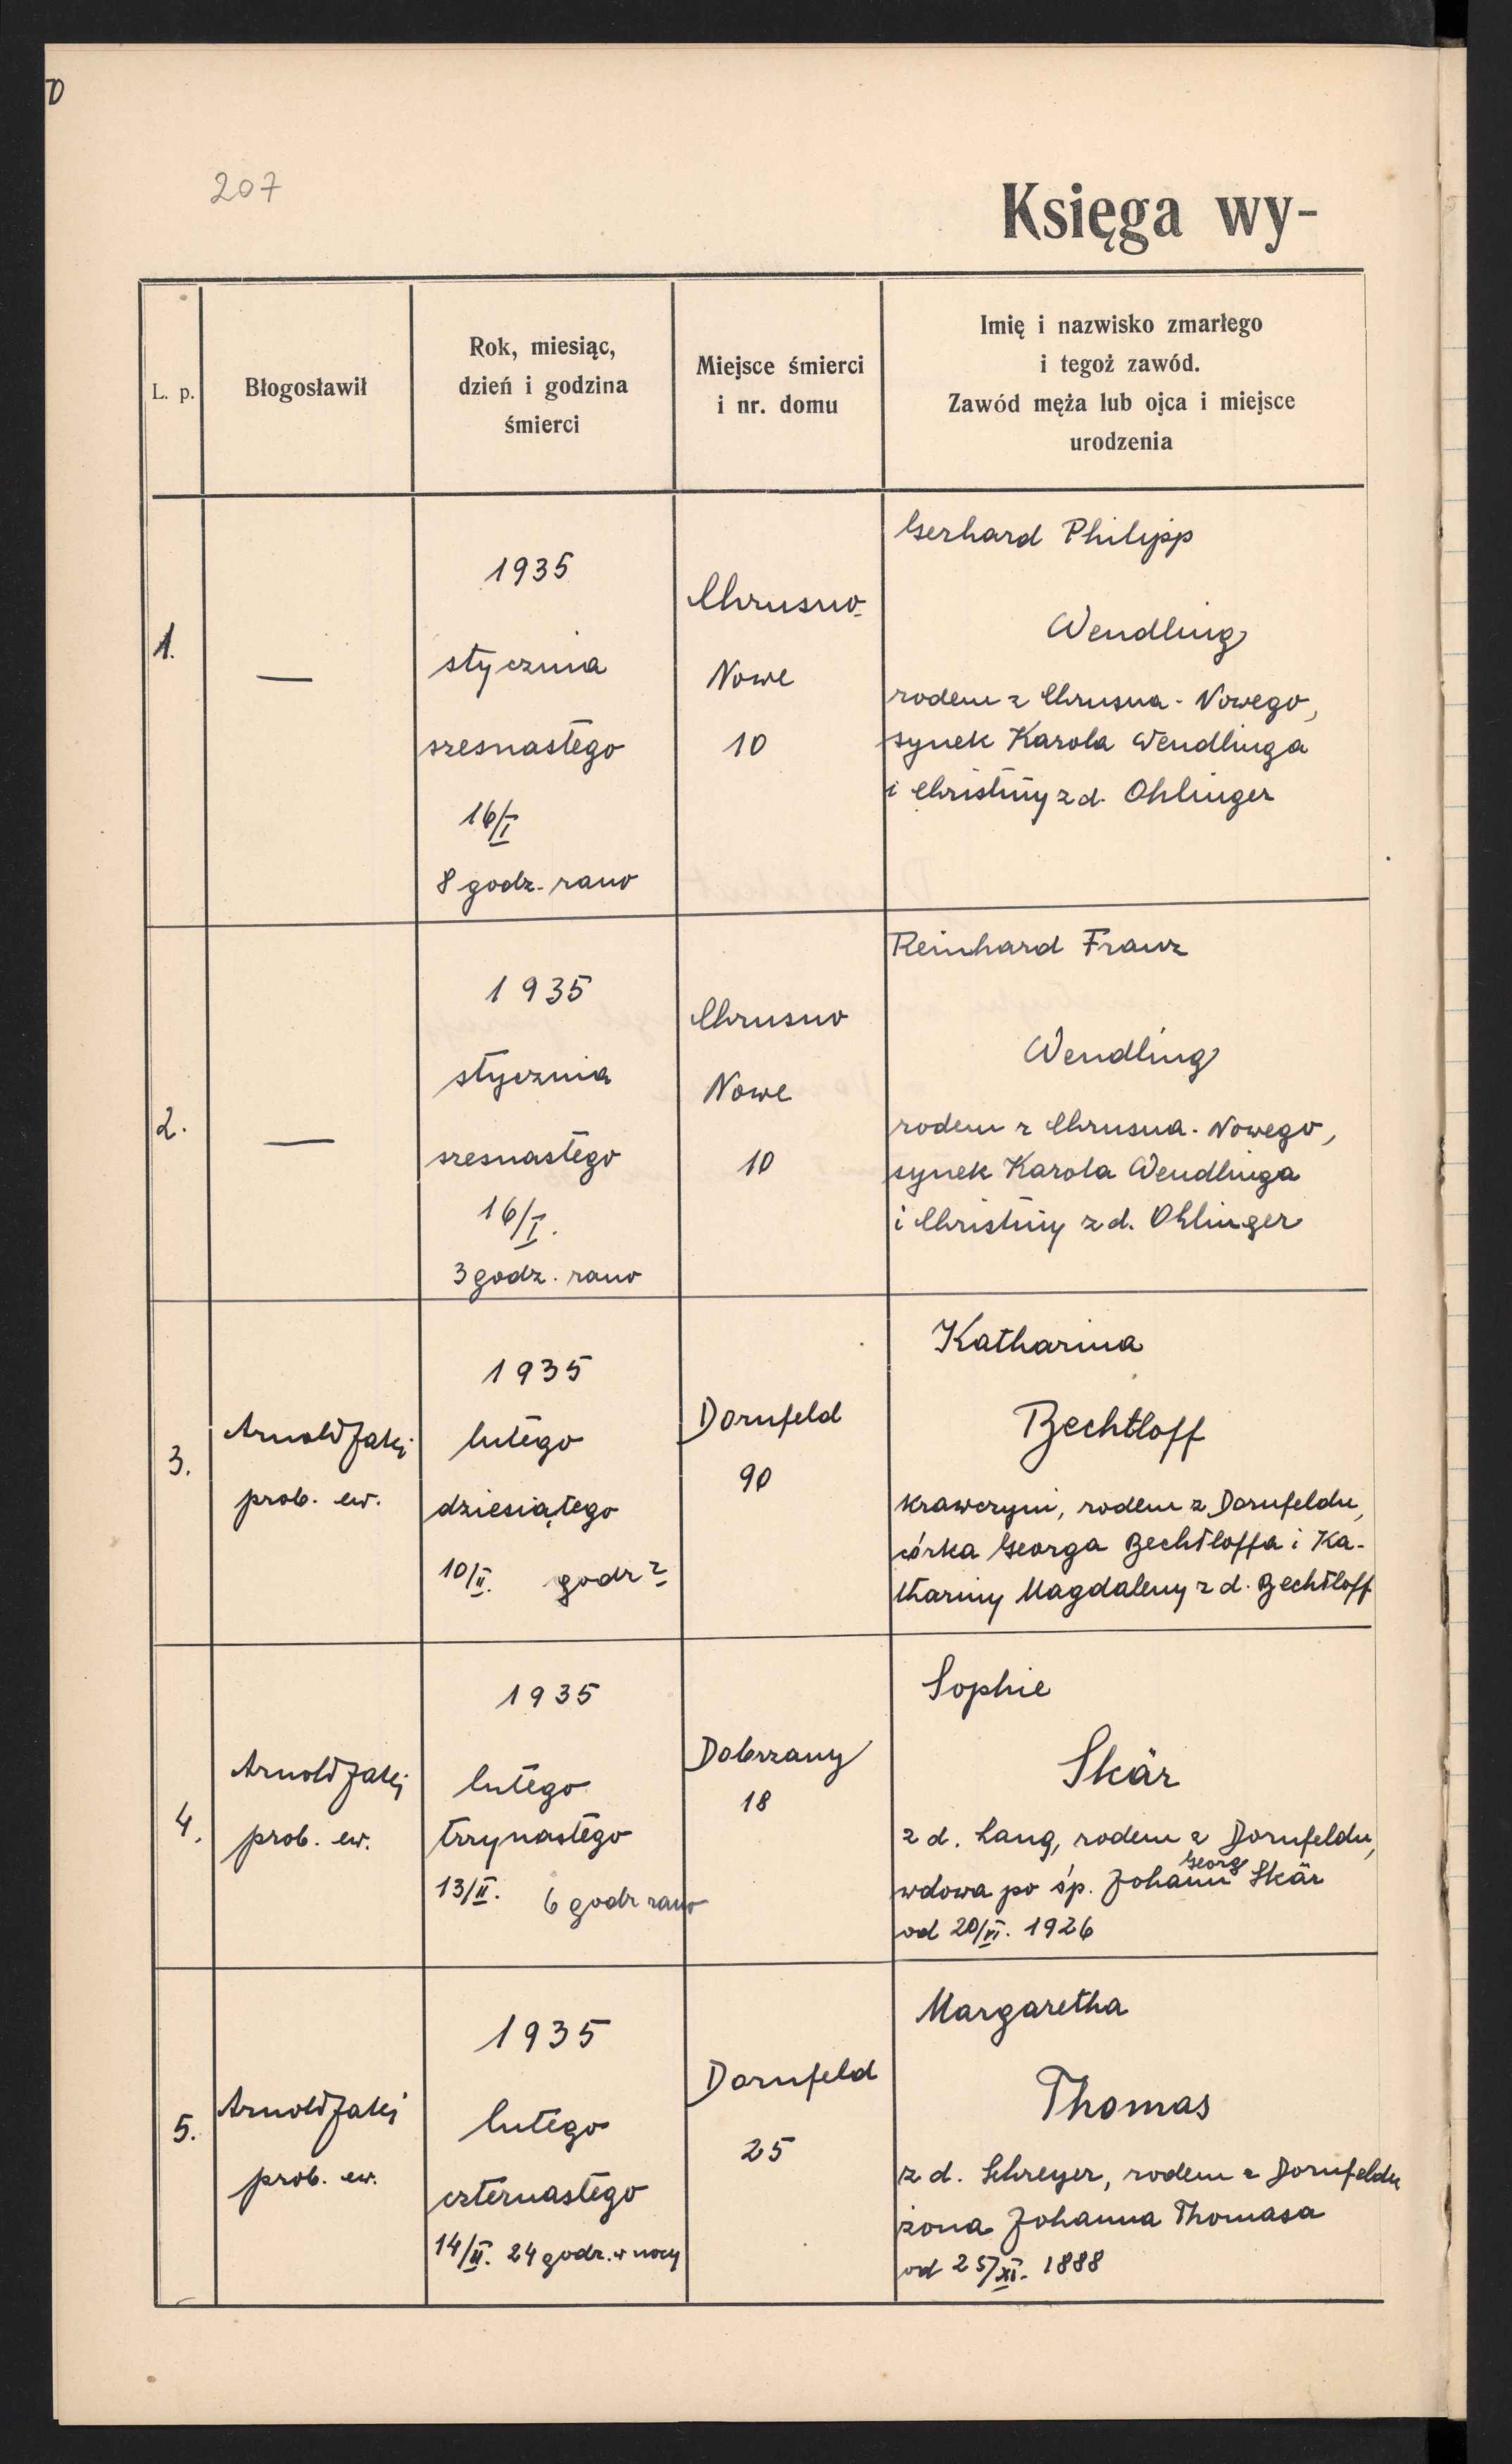 207
Księga wy-
L. p.
Błogosławił
Rok, miesiąc,
dzień i godzina
śmierci
Miejsce śmierci
i nr. domu
Imię i nazwisko zmarłego
i tegoż zawód.
Zawód męża lub ojca i miejsce
urodzenia
1.
—
1935
stycznia
szesnastego
16/I
8 godz. rano
Chrusno-
Nowe
10
Gerhard Philipp
Wendling
rodem z Chrusna-Nowego,
synek Karola Wendlinga
i Christiny z d. Ohlinger
2.
—
1935
stycznia
szesnastego
16/I.
3 godz. rano
Chrusno
Nowe
10
Reinhard Franz
Wendling
rodem z Chrusna-Nowego,
synek Karola Wendlinga
i Christiny z d. Ohlinger
3.
Arnold Jaki
prob. ew.
1935
lutego
dziesiątego
10/II. godz ?
Dornfeld
90
Katharina
Bechtloff
krawczyni, rodem z Dornfeldu,
córka Georga Bechtloffa i Ka-
thariny Magdaleny z d. Bechtloff
4.
Arnold Jaki
prob. ew.
1935
lutego
trzynastego
13/II. 6 godz rano
Dobrzany
18
Sophie
Skär
z d. Lang, rodem z Dornfeldu,
wdowa po śp. Johann Georg Skär
od 20/VI. 1926
5.
Arnold Jaki
prob. ew.
1935
lutego
czternastego
14/II. 24 godz. w nocy
Dornfeld
25
Margaretha
Thomas
z d. Schreyer, rodem z Dornfeldu
żona Johanna Thomasa
od 25/XI. 1888